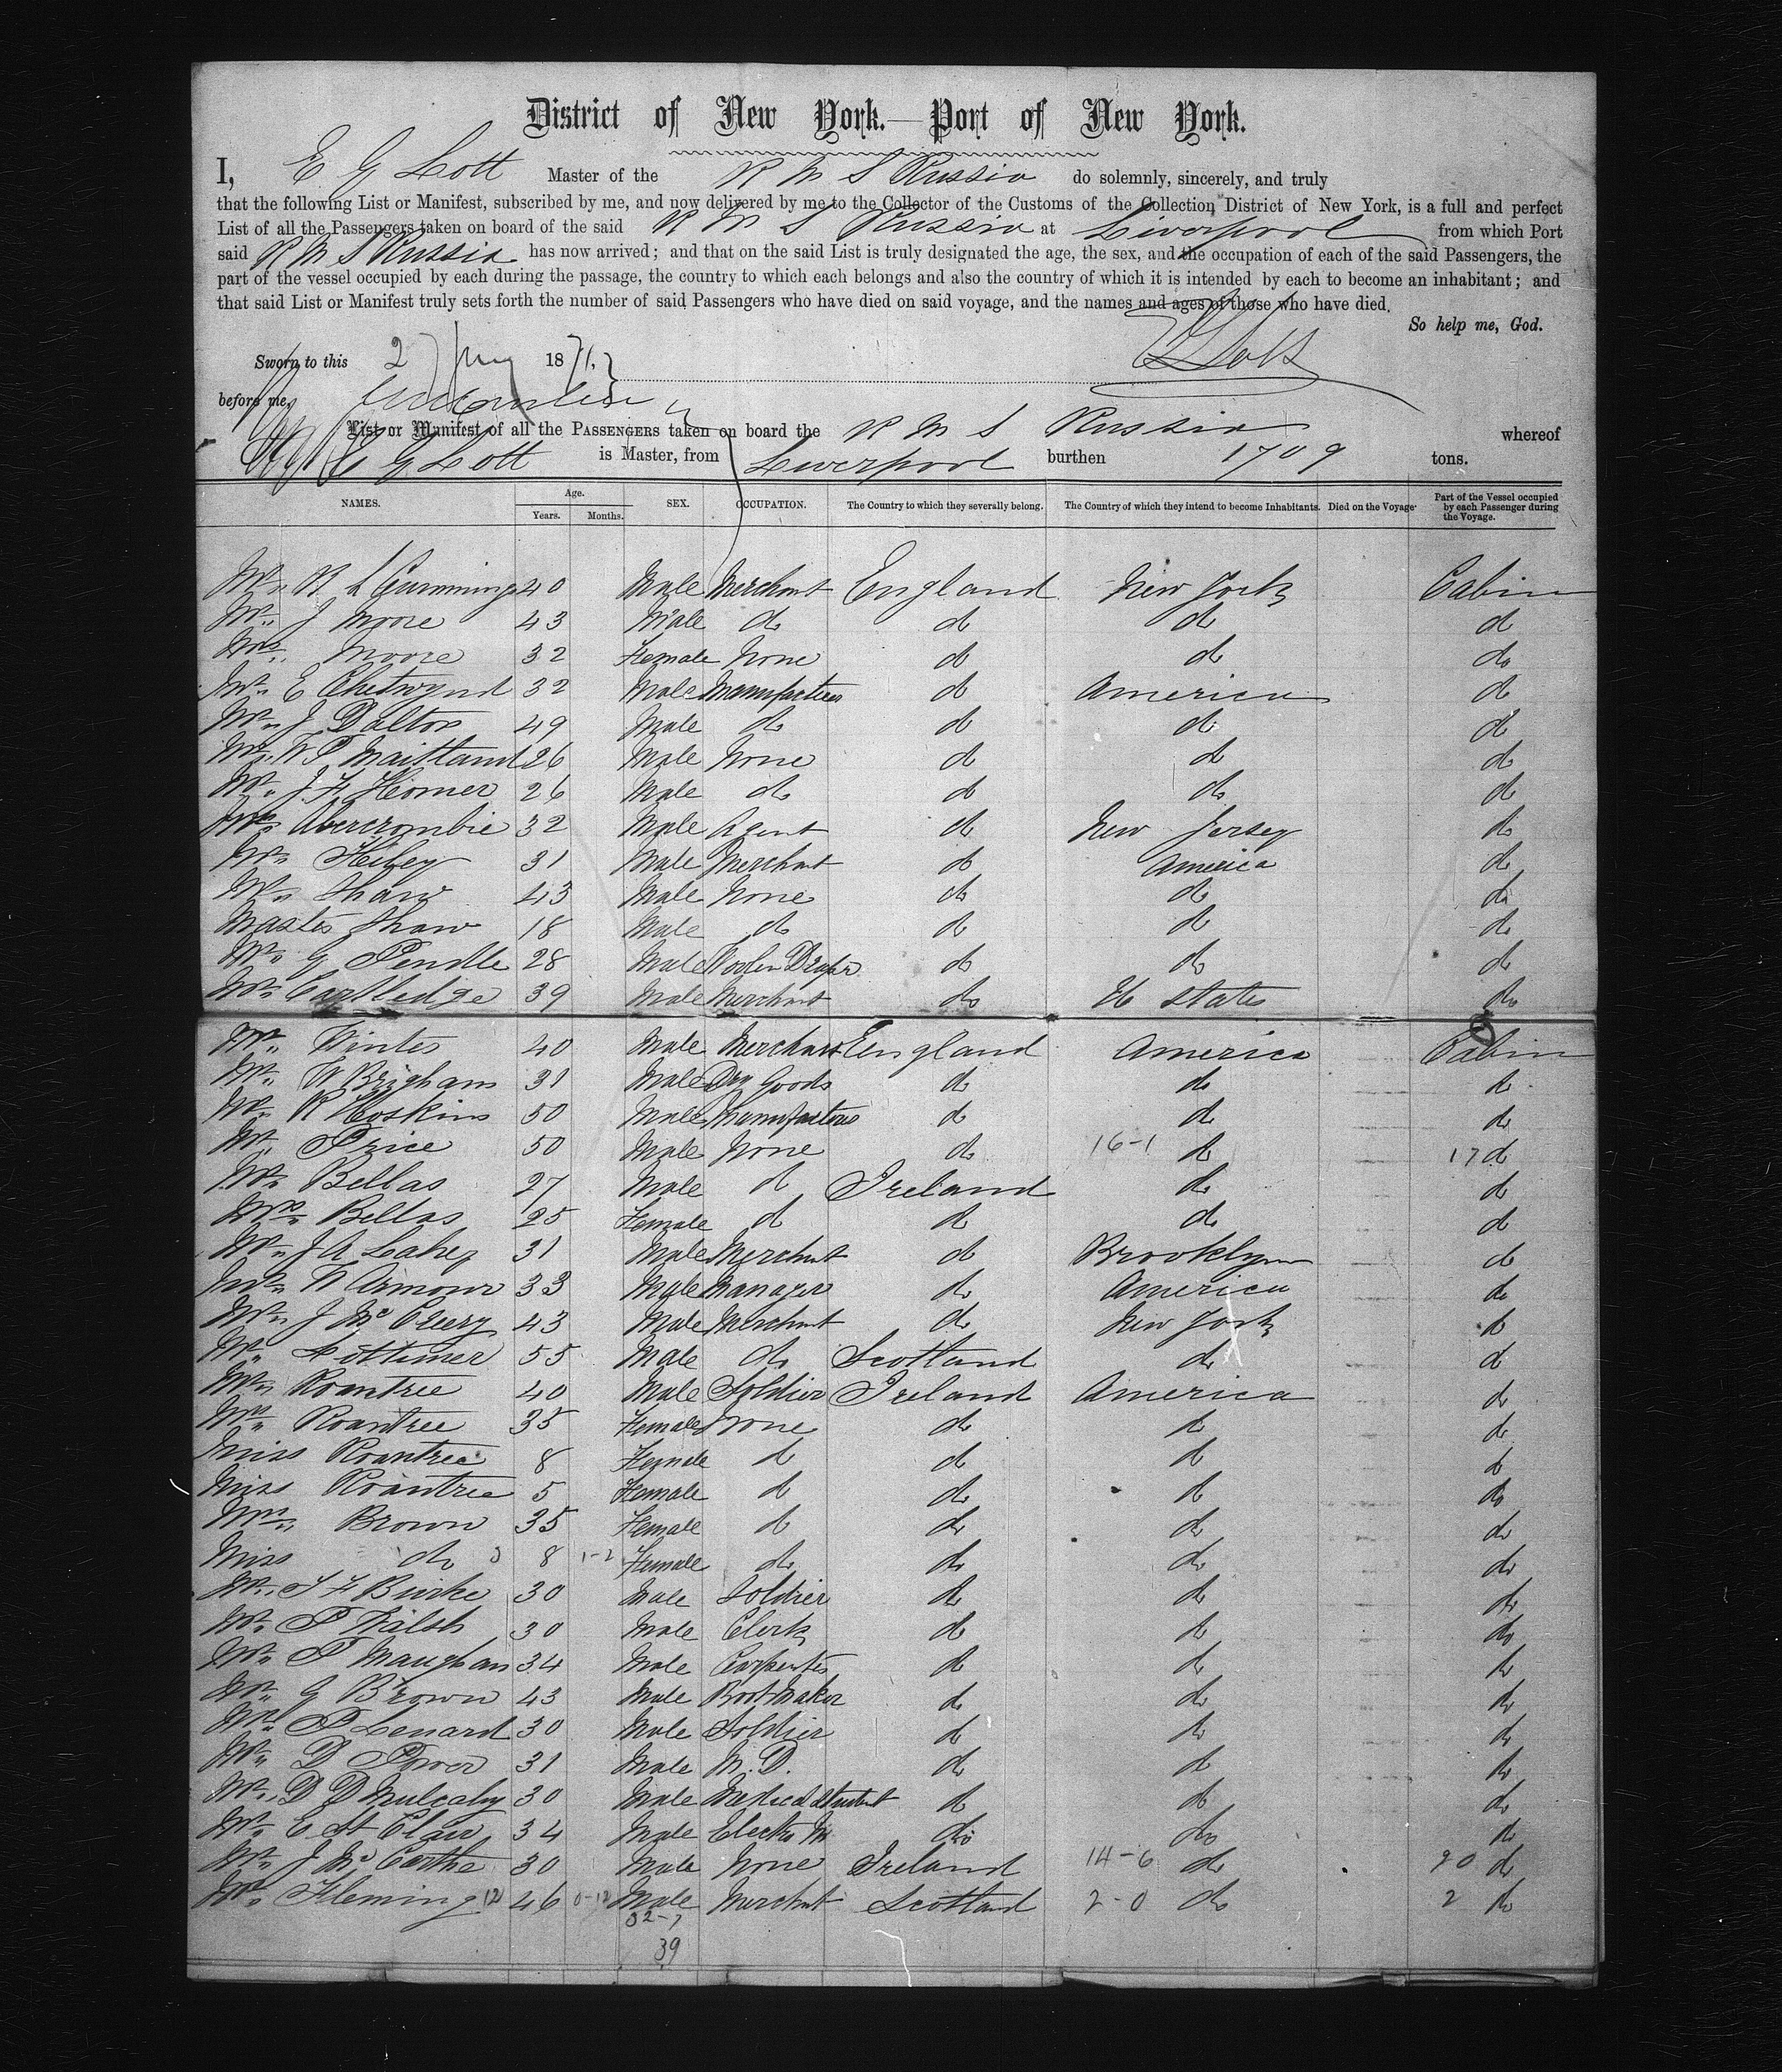 District of New York.—Port of New York.
I, E G Lott Master of the R M S Russia do solemnly, sincerely, and truly
that the following List or Manifest, subscribed by me, and now delivered by me to the Collector of the Customs of the Collection District of New York, is a full and perfect
List of all the Passengers taken on board of the said R M S Russia at Liverpool from which Port
said R M S Russia has now arrived; and that on the said List is truly designated the age, the sex, and the occupation of each of the said Passengers, the
part of the vessel occupied by each during the passage, the country to which each belongs and also the country of which it is intended by each to become an inhabitant; and
that said List or Manifest truly sets forth the number of said Passengers who have died on said voyage, and the names and ages of those who have died.
So help me, God.
Sworn to this 2 1871 E G Lott
before me,
List or Manifest of all the PASSENGERS taken on board the R M S Russia whereof
E G Lott is Master, from Liverpool burthen 1709 tons.
NAMES. Age. Years. Months. SEX. OCCUPATION. The Country to which they severally belong. The Country of which they intend to become Inhabitants. Died on the Voyage. Part of the Vessel occupied by each Passenger during the Voyage.
Mr R L Cumming 40 Male Merchant England New York Cabin
Mr J Moore 43 Male do do do do
Mrs Moore 32 Female None do do do
Mr E Chetwynd 32 Male Manufacturer do America do
Mr J Dalton 49 Male do do do do
Mr W P Maitland 26 Male None do do do
Mr J F Homer 26 Male do do do do
Mr Abercrombie 32 Male Agent do New Jersey do
Mr Hibey 31 Male Merchant do America do
Mr Shaw 43 Male None do do do
Master Shaw 18 Male do do do do
Mr G Pendle 28 Male Woolen Draper do do do
Mr Cartledge 39 Male Merchant do U States do
Mr Winter 40 Male Merchant England America Cabin
Mr W Brigham 31 Male Dry Goods do do do
Mr R Hoskins 50 Male Manufacturer do do do
Mr Price 50 Male None do 16-1 do 17 do
Mr Bellas 27 Male do Ireland do do
Mrs Bellas 25 Female do do do do
Mr J A Lahey 31 Male Merchant do Brooklyn do
Mr W Armour 33 Male Manager do America do
Mr J McCleery 43 Male Merchant do New York do
Mr Lottimer 55 Male do Scotland do do
Mr Roantree 40 Male Soldier Ireland America do
Mrs Roantree 35 Female None do do do
Miss Roantree 8 Female do do do do
Miss Roantree 5 Female do do do do
Mrs Brown 35 Female do do do do
Miss do 8 1-2 Female do do do do
Mr T F Burke 30 Male Soldier do do do
Mr P Walsh 30 Male Clerk do do do
Mr P Maughan 34 Male Carpenter do do do
Mr G Brown 43 Male Boot Maker do do do
Mr P Lenard 30 Male Soldier do do do
Mr D Power 31 Male M.D. do do do
Mr D D Mulcahy 30 Male Medical Student do do do
Mr E St Clair 34 Male Electro M do do do
Mr J McCarthe 30 Male None Ireland 14-6 do 20 do
Mr Fleming 12 46 0-12 Male Merchant Scotland 2-0 do 2 do
32-7
39